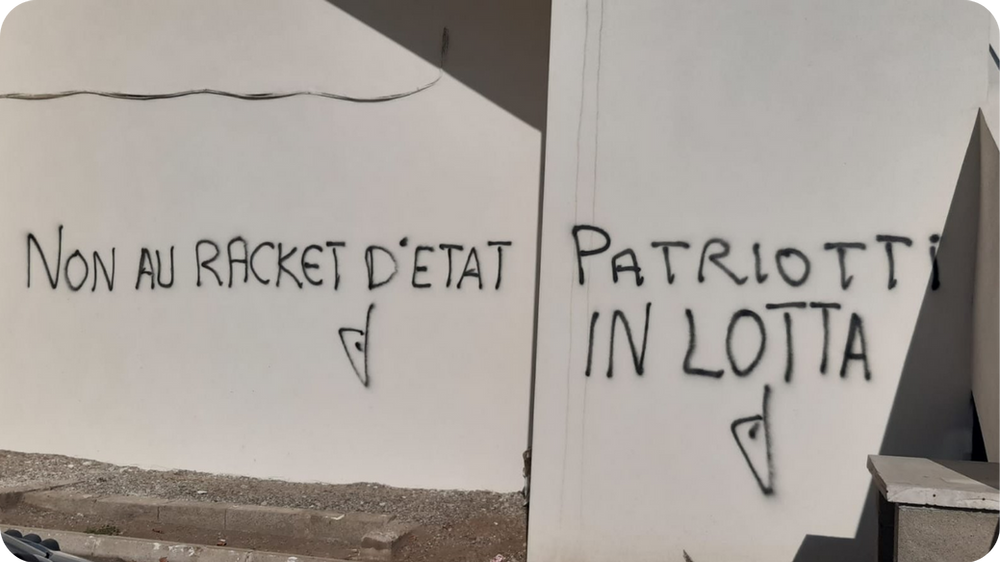 NON AU RACKET D'ETAT
PATRIOTTi
IN LOTTA